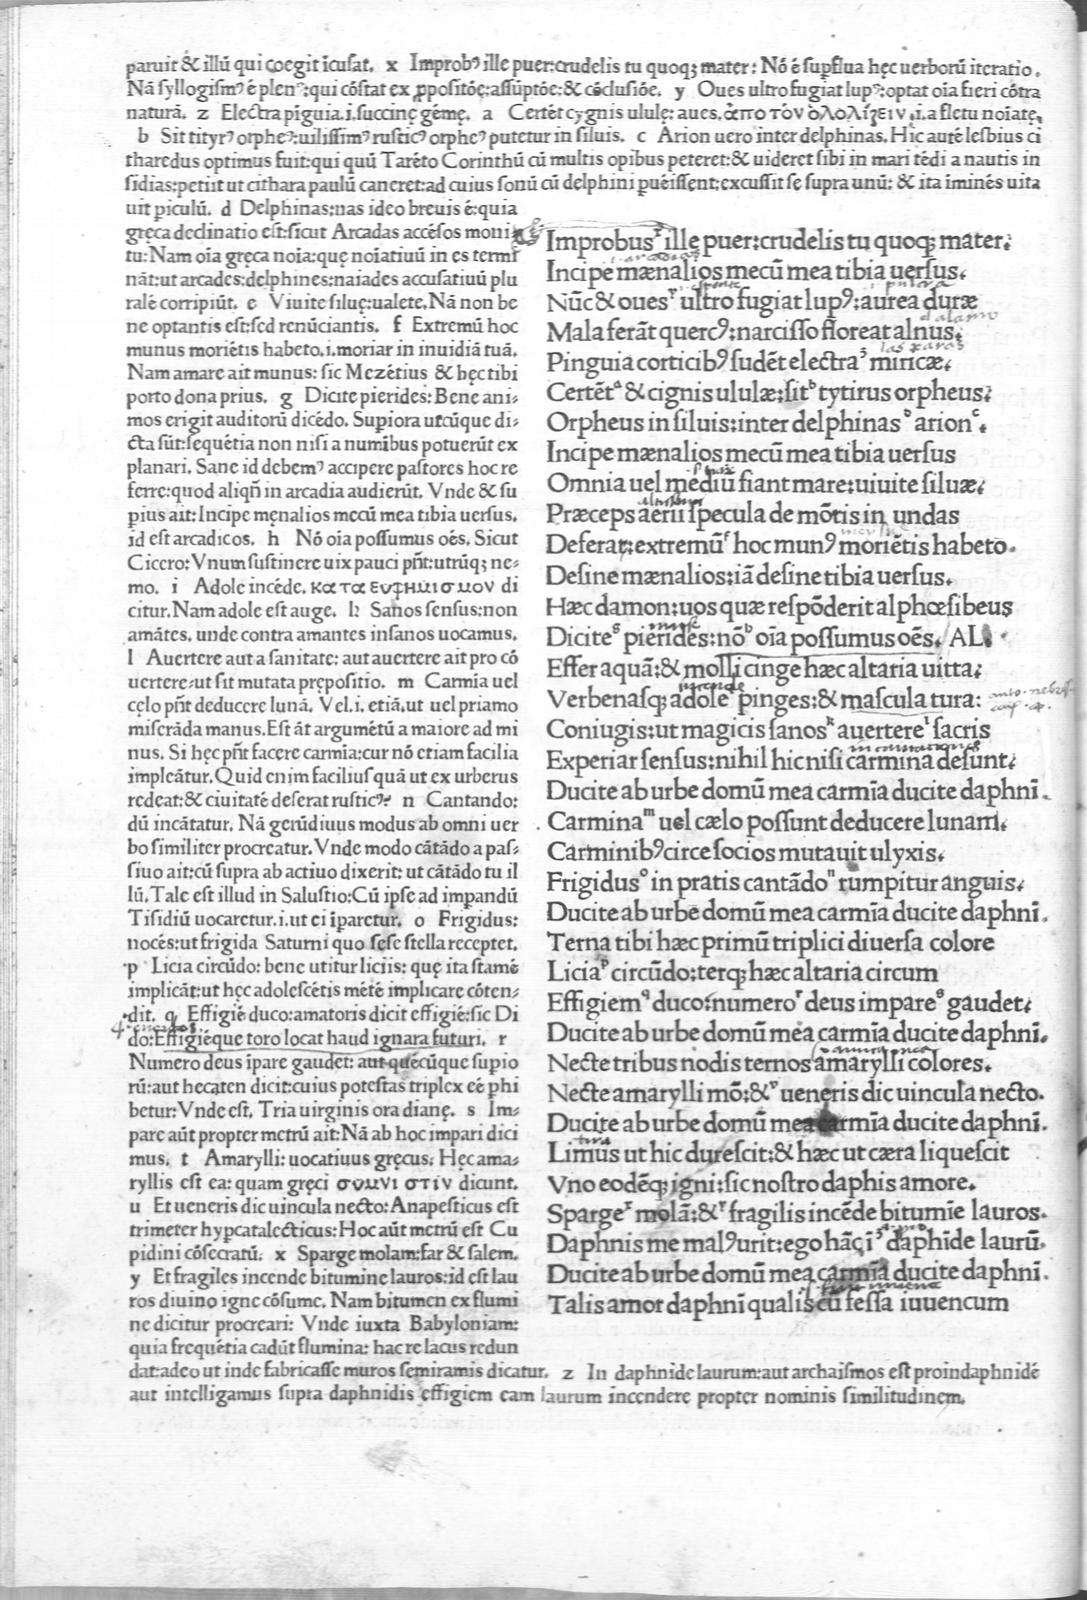 paruit & illū qui coegit īcusat. x Improbꝰ ille puer:crudelis tu quoqꝫ mater: Nō ē supflua hęc uerborū iteratio.
Nā syllogismꝰ ē plenꝰ:qui cōstat ex ꝓpositōe:assūptōe:& cōclusiōe. y Oues ultro fugiat lupꝰ:optat oīa fieri cōtra
naturā. z Electra pīguia.i.succinę gēmę. a Certēt cygnis ululę; aues. ἀπο τὸν ὀλολίζειν.i.a fletu noīatę.
b Sit tityrꝰ orpheꝰ:uilissimꝰ rusticꝰ orpheꝰ putetur in siluis. c Arion uero inter delphinas. Hic autē lesbius ci
tharedus optimus fuit:qui quū Tarēto Corinthū cū multis opibus peteret:& uideret sibi in mari tēdi a nautis in
sidias:petiit ut cithara paulū caneret:ad cuius sonū cū delphini puēissent:excussit se supra unū: & ita īminēs uita
uit piculū. d Delphinas:nas ideo breuis ē:quia
gręca declinatio est:sicut Arcadas accēsos moni
tu: Nam oīa gręca noīa:quę noīatiuū in es termī
nāt:ut arcades:delphines:naiades accusatiuū plu
ralē corripiūt. e Viuite siluę:ualete. Nā non be
ne optantis est:sed renūciantis. f Extremū hoc
munus moriētis habeto.i.moriar in inuidiā tuā.
Nam amare ait munus: sic Mezētius & hęc tibi
porto dona prius. g Dicite pierides: Bene ani-
mos erigit auditorū dicēdo. Supiora utcūque di-
cta sūt:sequētia non nisi a numībus potuerūt ex
planari. Sane id debemꝰ accipere pastores hoc re
ferre:quod aliqn̄ in arcadia audierūt. Vnde & su
pius ait:Incipe męnalios mecū mea tibia uersus.
id est arcadicos. h Nō oīa possumus oēs. Sicut
Cicero: Vnum sustinere uix pauci pn̄t: utrūqꝫ ne-
mo. i Adole incēde. κατα ευφημισμον di
citur. Nam adole est auge. k Sanos sensus:non
amātes. unde contra amantes insanos uocamus.
l Auertere aut a sanitate: aut auertere ait pro cō
uertere:ut sit mutata prępositio. m Carmīa uel
cęlo pn̄t deducere lunā. Vel.i. etiā,ut uel priamo
miserāda manus. Est āt argumētū a maiore ad mi
nus. Si hęc pn̄t facere carmīa:cur nō etiam facilia
impleātur. Quid enim faciliusquā ut ex urberus
redeat:& ciuitatē deserat rusticꝰ? n Cantando:
dū incātatur. Nā gerūdiuus modus ab omni uer
bo similiter procreatur. Vnde modo cātādo a pas-
siuo ait:cū supra ab actiuo dixerit: ut cātādo tu il
lū. Tale est illud in Salustio: Cū ipse ad impandū
Tisidiū uocaretur.i.ut ei īparetur. o Frigidus:
nocēs:ut frigida Saturni quo sese stella receptet.
p Licia circūdo: bene utitur liciis: quę ita stamē
implicāt:ut hęc adolescētis mētē implicare cōten-
dit. q Effigiē duco:amatoris dicit effigiē:sic Di
do:Effigiēque toro locat haud ignara futuri. r
Numero deus īpare gaudet: aut quēcūque supio
rū:aut hecaten dicit:cuius potestas triplex eē phi
betur: Vnde est. Tria uirginis ora dianę. s Im-
pare aūt propter metrū ait: Nā ab hoc impari dici
mus. t Amarylli: uocatiuus gręcus. Hęc ama-
ryllis est ea: quam gręci σουνι στίν dicunt.
u Et ueneris dic uincula necto: Anapesticus est
trimeter hypcatalecticus: Hoc aūt metrū est Cu
pidini cōsecratū. x Sparge molam:far & salem.
y Et fragiles incende bitumine lauros:id est lau
ros diuino igne cōsume. Nam bitumen ex flumi
ne dicitur procreari: Vnde iuxta Babyloniam:
quia frequētia cadūt flumina: hac re lacus redun
dat:adeo ut inde fabricasse muros semiramis dicatur. z In daphnide laurum:aut archaismos est proindaphnidē
aut intelligamus supra daphnidis effigiem eam laurum incendere propter nominis similitudinem.
Improbusˣ ille puer:crudelis tu quoqꝫ mater:
Incipe mænalios mecū mea tibia uersus.
Nūc & ouesʸ ultro fugiat lupꝰ:aurea duræ
Mala ferāt quercꝰ:narcisso floreat alnus.
Pinguia corticibꝰ sudēt electraᶻ miricæ.
Certētᵃ & cignis ululæ:sitᵇ tytirus orpheus:
Orpheus in siluis:inter delphinasᵈ arionᶜ.
Incipe mænalios mecū mea tibia uersus
Omnia uel mediū fiant mare:uiuite siluæ:
Præceps aerii specula de mōtis in undas
Deferar:extremūᶠ hoc munꝰ moriētis habeto.
Desine mænalios:iā desine tibia uersus.
Hæc damon:uos quæ respōderit alphœsibeus
Diciteᵍ pierides:nōʰ oīa possumus oēs. AL.
Effer aquā:& molli cinge hæc altaria uitta:
Verbenasqꝫ adoleⁱ pinges:& mascula tura:
Coniugis:ut magicis sanosᵏ auertereˡ sacris
Experiar sensus:nihil hic nisi carmina desunt:
Ducite ab urbe domū mea carmīa ducite daphnī.
Carminaᵐ uel cælo possunt deducere lunam.
Carminibꝰ circe socios mutauit ulyxis.
Frigidusᵒ in pratis cantādoⁿ rumpitur anguis.
Ducite ab urbe domū mea carmīa ducite daphnī.
Terna tibi hæc primū triplici diuersa colore
Liciaᵖ circūdo:terqꝫ hæc altaria circum
Effigiem duco:numeroʳ deus impareˢ gaudet:
Ducite ab urbe domū mea carmīa ducite daphnī.
Necte tribus nodis ternos amarylli colores.
Necte amarylli mō:&ᵛ ueneris dic uincula necto.
Ducite ab urbe domū mea carmīa ducite daphnī.
Limus ut hic durescit:& hæc ut cæra liquescit
Vno eodēqꝫ igni:sic nostro daphis amore.
Spargeˣ molā:&ʸ fragilis incēde bitumīe lauros.
Daphnis me malꝰ urit:ego hāc īᶻ daphide laurū.
Ducite ab urbe domū mea carmīa ducite daphnī.
Talis amor daphnī qualis cū fessa iuuencum